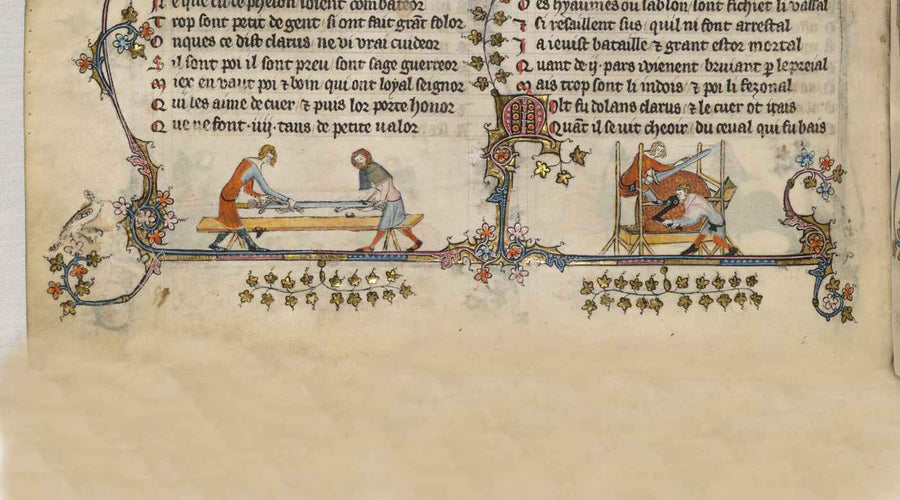 Ne que cil de combateor
Trop sont petit de gent si ont fait grãt folor
Onques ce dist clarus ne vi vrai cuideor
Sil sont poi il sont preu sont sage guerreor
Miex en vaut poi ⁊ boin qui ont loyal seignor
Qui les aime de cuer ⁊ puis lor porte honor
Que ne font .iiij. tans de petite ualor
Des hyaumes ou sablon sont fichiet li vassal
⁊ si resaillent sus quil ni font arrestal
Ja ieuist bataille ⁊ grant estor mortal
Quant de .ij. pars ivienent bruiant p le preial
Mais trop sont li indois ⁊ poi li fezonal
Molt fu dolans clarus ⁊ le cuer ot irais
Quãt il se uit cheoir du ceual qui fu bais